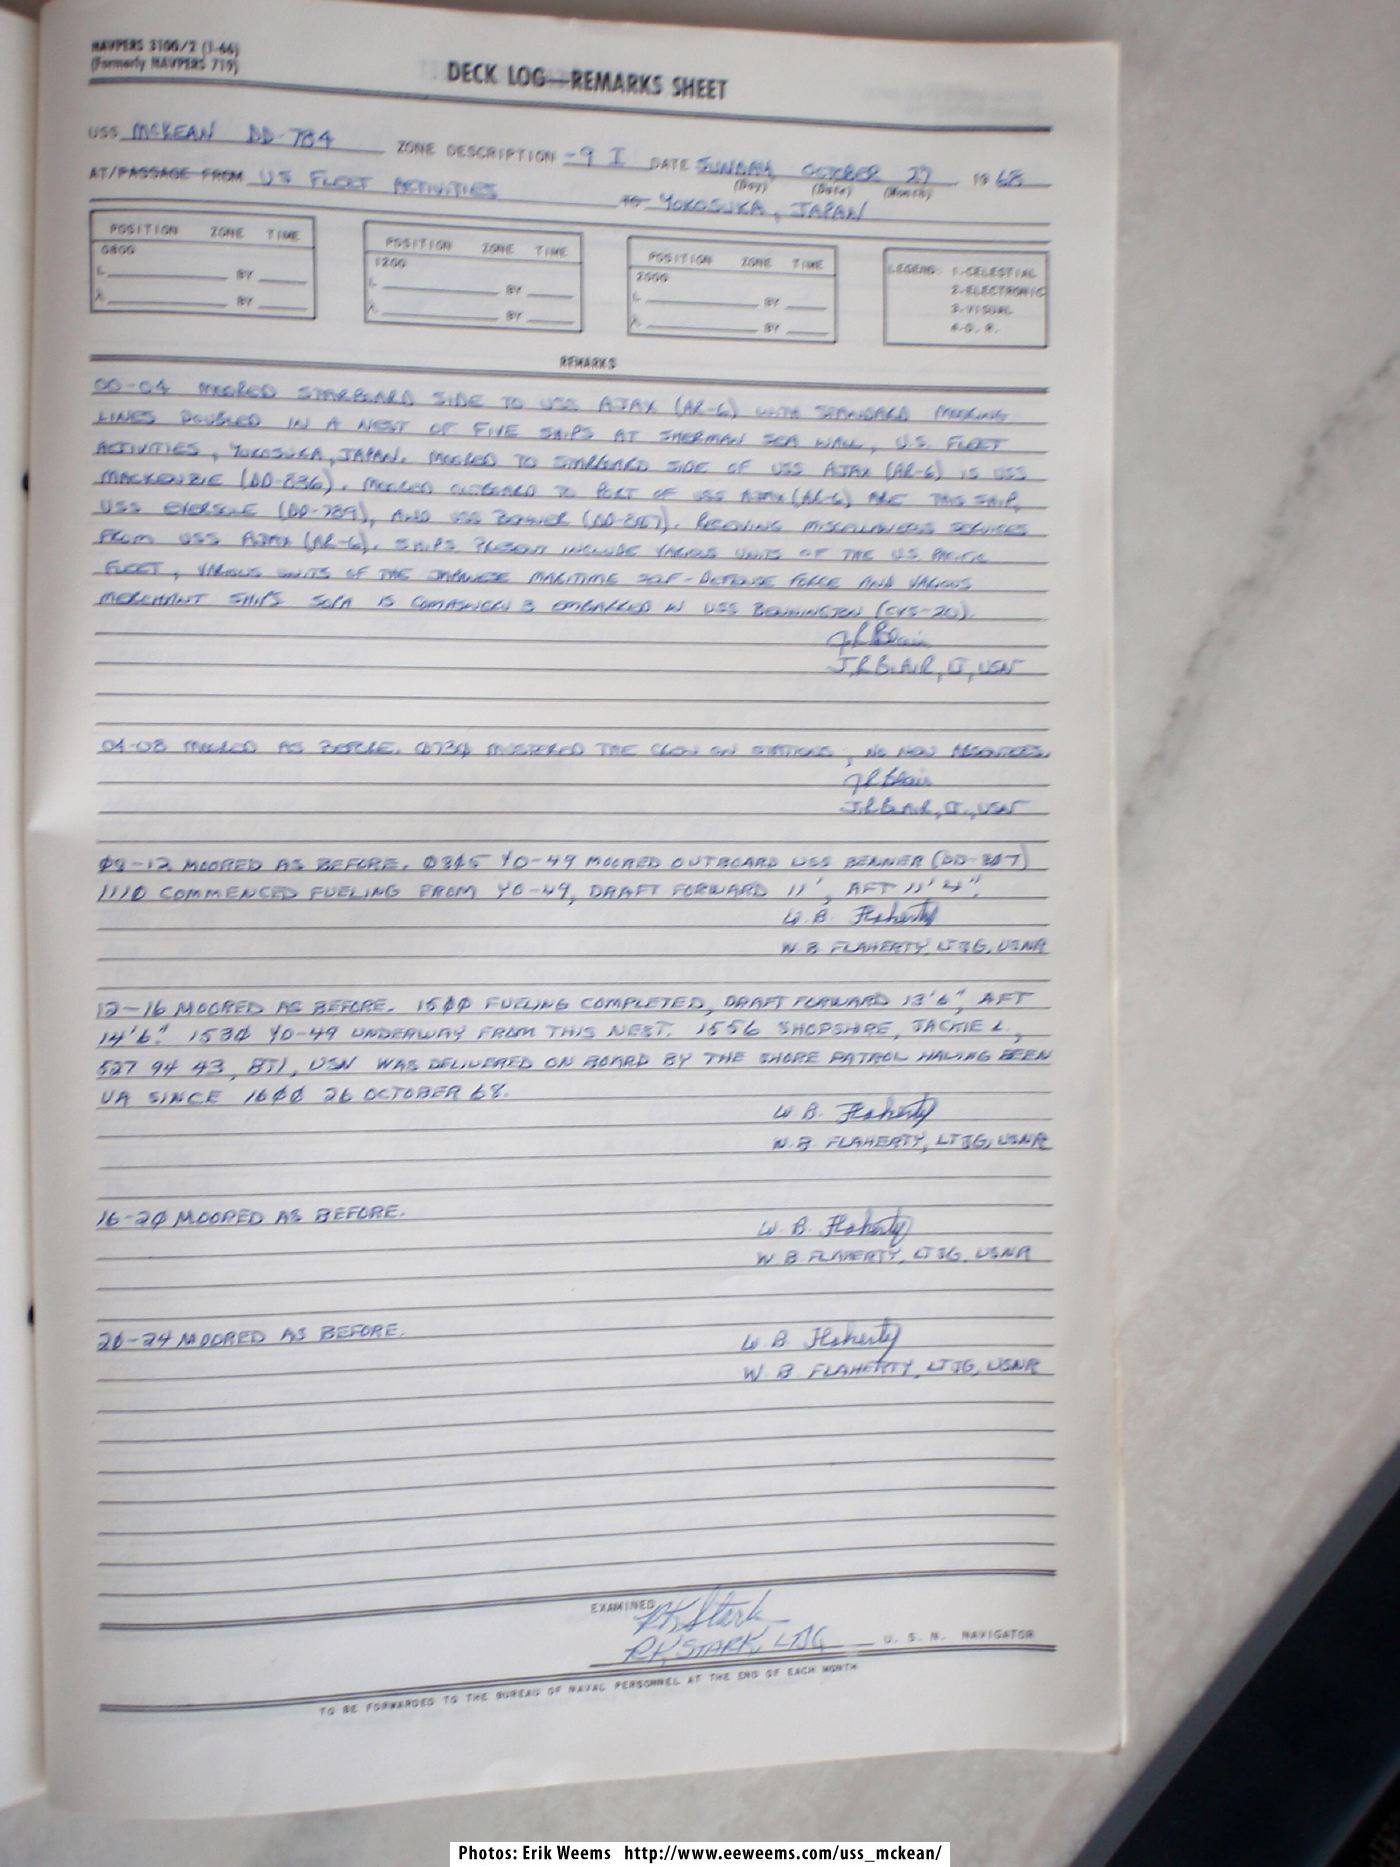 NAVPERS 3100/2 (1-66)
(Formerly NAVPERS 719)
DECK LOG—REMARKS SHEET
USS MCKEAN DD-784 ZONE DESCRIPTION -9 I DATE SUNDAY OCTOBER 27 1968
(Day) (Date) (Month)
AT/PASSAGE FROM US FLEET ACTIVITIES TO YOKOSUKA, JAPAN
POSITION ZONE TIME
0800
L BY
λ BY
POSITION ZONE TIME
1200
L BY
λ BY
POSITION ZONE TIME
2000
L BY
λ BY
LEGEND: 1-CELESTIAL
2-ELECTRONIC
3-VISUAL
4-D. R.
REMARKS
00-04 MOORED STARBOARD SIDE TO USS AJAX (AR-6) WITH STANDARD MOORING
LINES DOUBLED IN A NEST OF FIVE SHIPS AT SHERMAN SEA WALL, U.S. FLEET
ACTIVITIES, YOKOSUKA, JAPAN. MOORED TO STARBOARD SIDE OF USS AJAX (AR-6) IS USS
MACKENZIE (DD-836). MOORED OUTBOARD TO PORT OF USS AJAX (AR-6) ARE THIS SHIP,
USS EVERSOLE (DD-789), AND USS BENNER (DD-807). RECEIVING MISCELLANEOUS SERVICES
FROM USS AJAX (AR-6). SHIPS PRESENT INCLUDE VARIOUS UNITS OF THE U.S. PACIFIC
FLEET, VARIOUS UNITS OF THE JAPANESE MARITIME SELF-DEFENSE FORCE AND VARIOUS
MERCHANT SHIPS SOPA IS 3 EMBARKED IN USS BENNINGTON (CVS-20).
J R Blair
J.R BLAIR, LT, USN
04-08 MOORED AS BEFORE. 0730 MUSTERED THE CREW ON STATIONS, NO NEW ABSENTEES.
J R Blair
J.R BLAIR, LT., USN
08-12 MOORED AS BEFORE. 0845 YO-49 MOORED OUTBOARD USS BENNER (DD-807)
1110 COMMENCED FUELING FROM YO-49, DRAFT FORWARD 11', AFT 11' 4".
W. B. Flaherty
W. B. FLAHERTY, LTJG, USNR
12-16 MOORED AS BEFORE. 1500 FUELING COMPLETED, DRAFT FORWARD 13'6", AFT
14'6". 1530 YO-49 UNDERWAY FROM THIS NEST. 1556 SHOPSHIRE, JACKIE L.,
527 94 43, BT1, USN WAS DELIVERED ON BOARD BY THE SHORE PATROL HAVING BEEN
UA SINCE 1600 26 OCTOBER 68.
W B. Flaherty
W. B. FLAHERTY, LTJG, USNR
16-20 MOORED AS BEFORE.
W. B. Flaherty
W B FLAHERTY, LTJG, USNR
20-24 MOORED AS BEFORE.
W B Flaherty
W B FLAHERTY, LTJG, USNR
EXAMINED
RK Stark
R.K. STARK, LTJG U. S. N. NAVIGATOR
TO BE FORWARDED TO THE BUREAU OF NAVAL PERSONNEL AT THE END OF EACH MONTH
Photos: Erik Weems http://www.eeweems.com/uss_mckean/